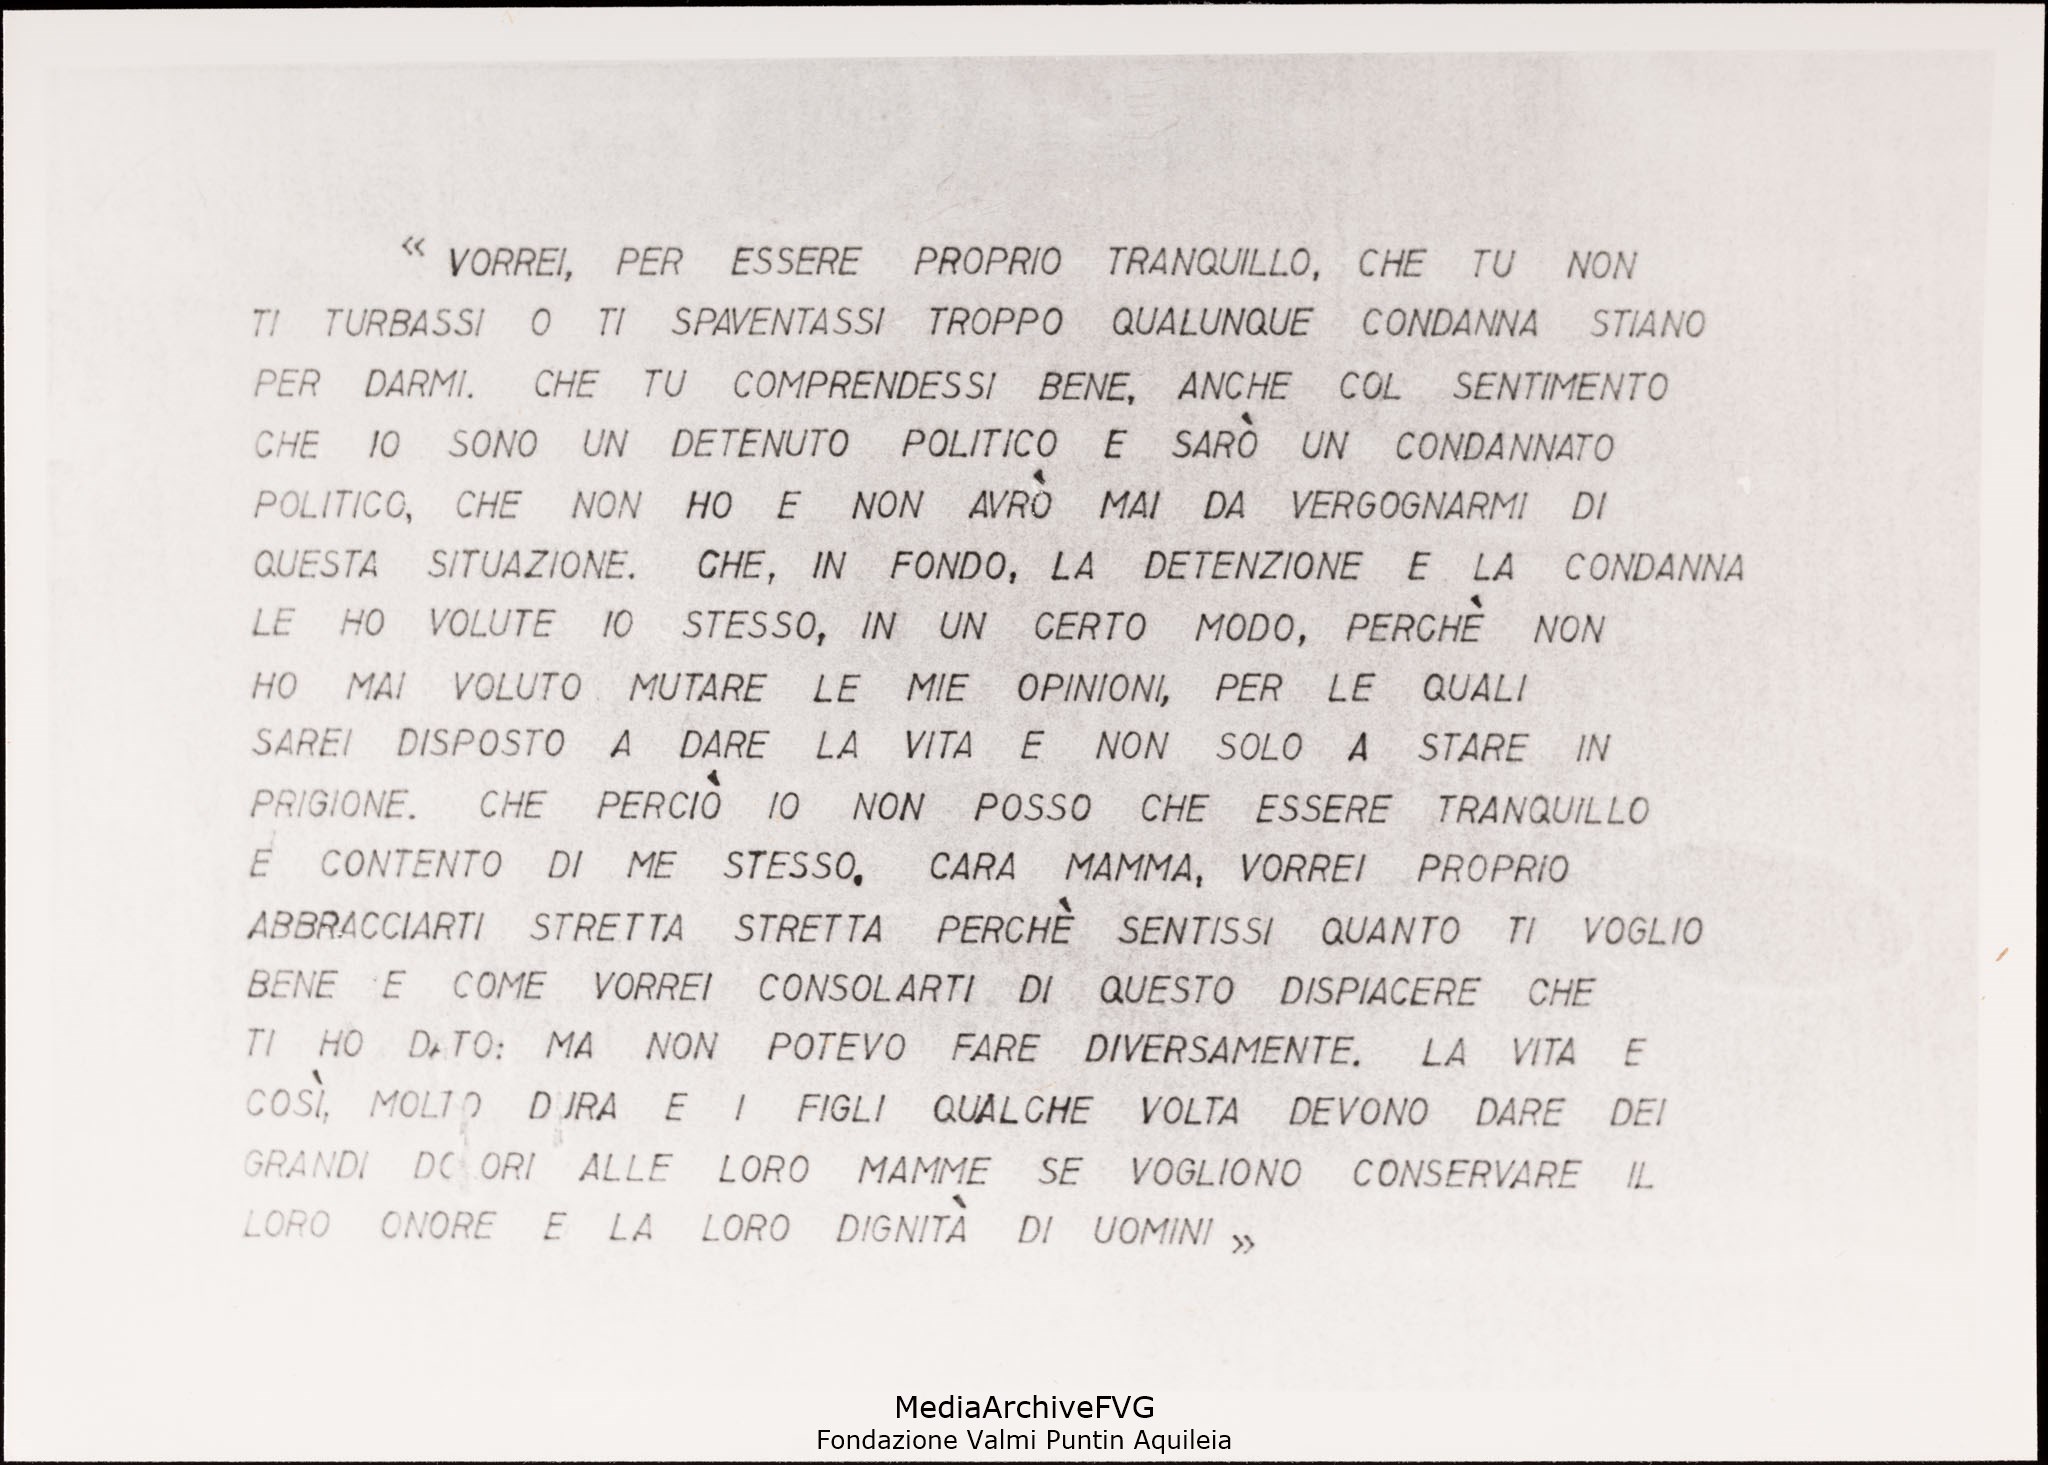 « VORREI, PER ESSERE PROPRIO TRANQUILLO, CHE TU NON
TI TURBASSI O TI SPAVENTASSI TROPPO QUALUNQUE CONDANNA STIANO
PER DARMI. CHE TU COMPRENDESSI BENE, ANCHE COL SENTIMENTO
CHE IO SONO UN DETENUTO POLITICO E SARÒ UN CONDANNATO
POLITICO, CHE NON HO E NON AVRÒ MAI DA VERGOGNARMI DI
QUESTA SITUAZIONE. CHE, IN FONDO, LA DETENZIONE E LA CONDANNA
LE HO VOLUTE IO STESSO, IN UN CERTO MODO, PERCHÈ NON
HO MAI VOLUTO MUTARE LE MIE OPINIONI, PER LE QUALI
SAREI DISPOSTO A DARE LA VITA E NON SOLO A STARE IN
PRIGIONE. CHE PERCIÒ IO NON POSSO CHE ESSERE TRANQUILLO
E CONTENTO DI ME STESSO. CARA MAMMA, VORREI PROPRIO
ABBRACCIARTI STRETTA STRETTA PERCHÈ SENTISSI QUANTO TI VOGLIO
BENE E COME VORREI CONSOLARTI DI QUESTO DISPIACERE CHE
TI HO DATO: MA NON POTEVO FARE DIVERSAMENTE. LA VITA E
COSÌ, MOLTO DURA E I FIGLI QUALCHE VOLTA DEVONO DARE DEI
GRANDI DOLORI ALLE LORO MAMME SE VOGLIONO CONSERVARE IL
LORO ONORE E LA LORO DIGNITÀ DI UOMINI »
MediaArchiveFVG
Fondazione Valmi Puntin Aquileia